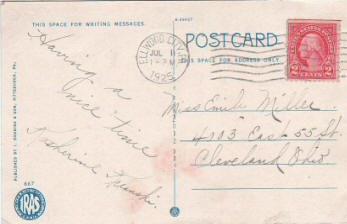 THIS SPACE FOR WRITING MESSAGES.
Having a
nice time
Katherine
PUBLISHED BY I. ROBBINS & SON, PITTSBURGH, PA.
667
IRAS
ELLWOOD CITY, PA.
JUL 11
1925
POSTCARD
THIS SPACE FOR ADDRESS ONLY.
2 CENTS 2
Miss Emile Miller
4003 East 55 St.
Cleveland Ohio